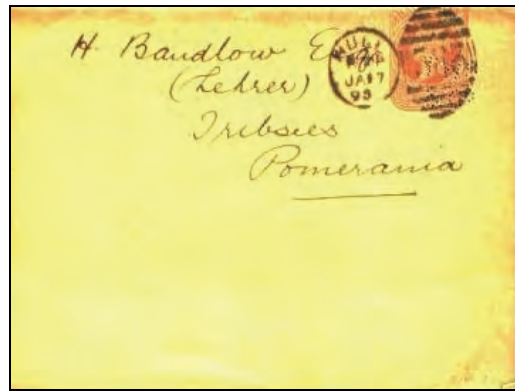 H. Baudlow E
(Lehrer)
Tribsees
Pomerania
HULL
JA 17
93